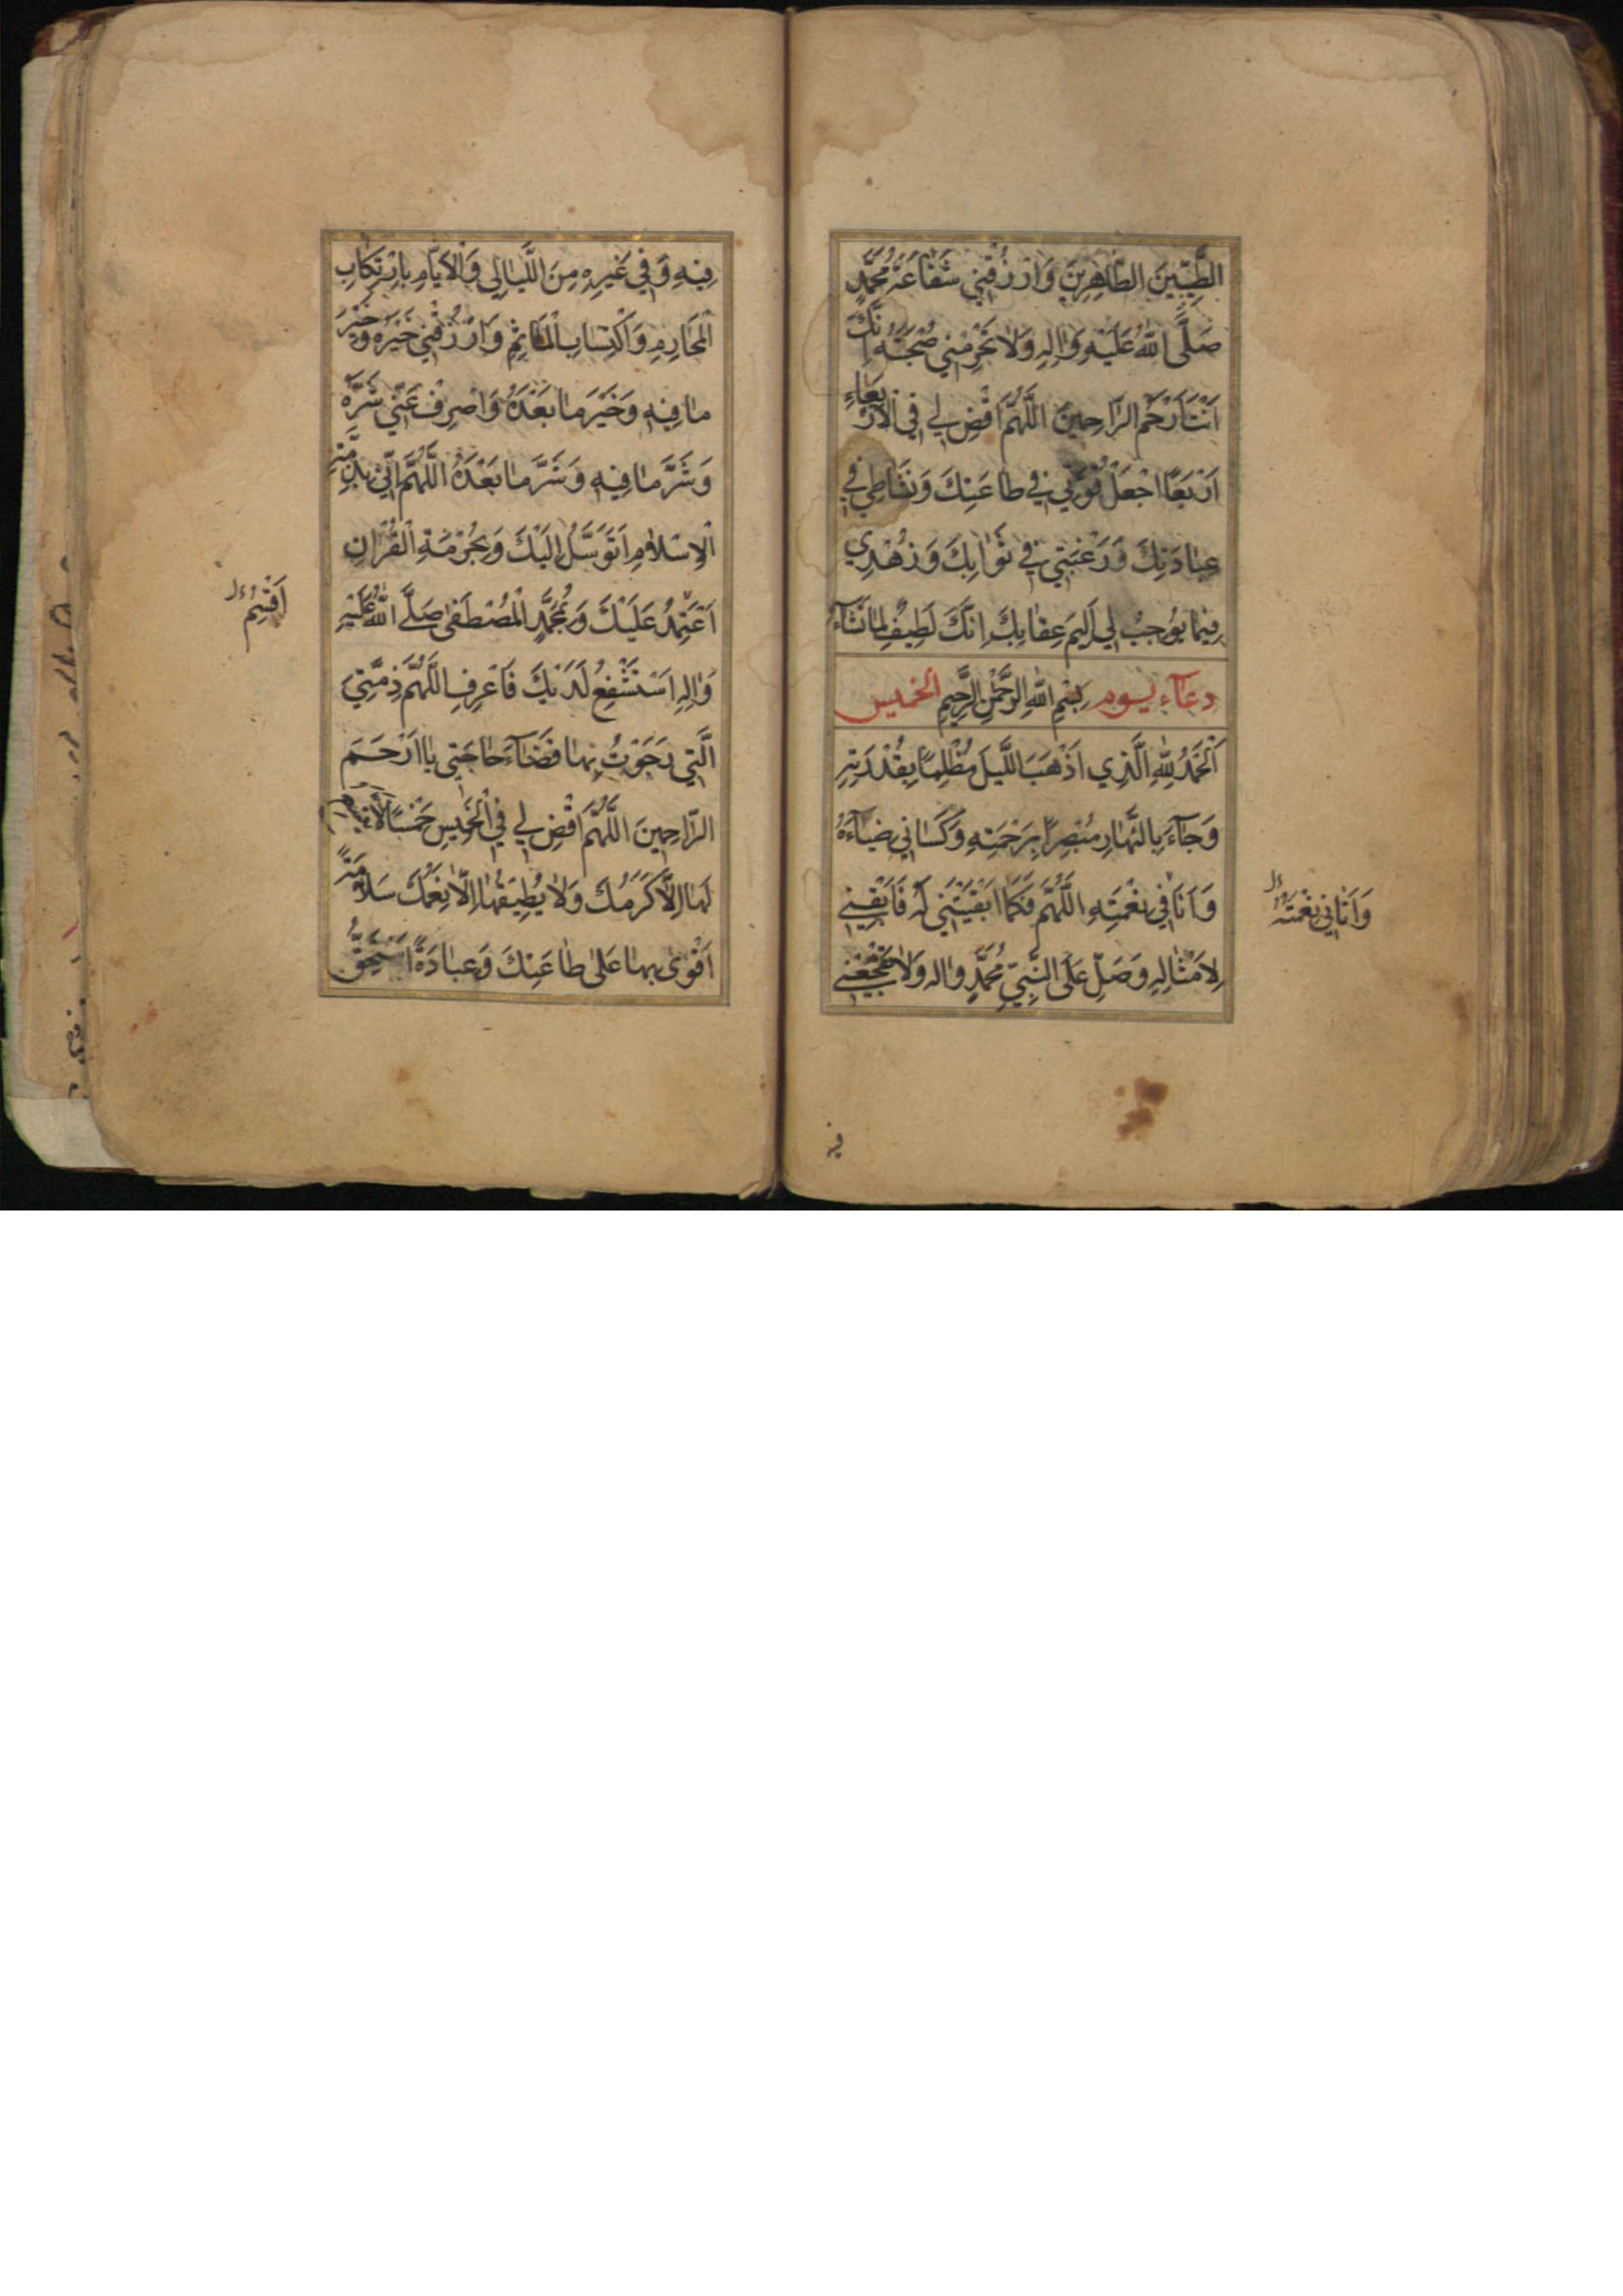 الطَّيِّبِينَ الطَّاهِرِينَ وَارْزُقْنِي شَفَاعَةَ مُحَمَّدٍ
صَلَّى اللّٰهُ عَلَيْهِ وَاٰلِهِ وَلَا تَحْرِمْنِي صُحْبَتَهُ اِنَّكَ
اَنْتَ اَرْحَمُ الرَّاحِمِينَ اَللّٰهُمَّ اقْضِ لِي فِي الْاَرْبَعَاءِ
اَرْبَعًا اجْعَلْ قُوَّتِي فِي طَاعَتِكَ وَنَشَاطِي فِي
عِبَادَتِكَ وَرَغْبَتِي فِي ثَوَابِكَ وَزُهْدِي
فِيمَا يُوجِبُ لِي اَلِيمَ عِقَابِكَ اِنَّكَ لَطِيفٌ لِمَا تَشَآءُ
دعآء يوم بِسْمِ اللّٰهِ الرَّحْمٰنِ الرَّحِيمِ الخميس
اَلْحَمْدُ لِلّٰهِ الَّذِي اَذْهَبَ اللَّيْلَ مُظْلِمًا بِقُدْرَتِهِ
وَجَآءَ بِالنَّهَارِ مُبْصِرًا بِرَحْمَتِهِ وَكَسَانِي ضِيَآءَهُ
وَاَنَا فِي نِعْمَتِهِ اَللّٰهُمَّ فَكَمَا اَبْقَيْتَنِي لَهُ فَاَبْقِنِي
لِاَمْثَالِهِ وَصَلِّ عَلَى النَّبِيِّ مُحَمَّدٍ وَاٰلِهِ وَلَا تَفْجَعْنِي
وَاٰتَانِي نِعْمَتَهُ
فيه
فِيهِ وَفِي غَيْرِهِ مِنَ اللَّيَالِي وَالْاَيَّامِ بِارْتِكَابِ
الْمَحَارِمِ وَاكْتِسَابِ الْمَاٰثِمِ وَارْزُقْنِي خَيْرَهُ وَخَيْرَ
مَا فِيهِ وَخَيْرَ مَا بَعْدَهُ وَاصْرِفْ عَنِّي شَرَّهُ
وَشَرَّ مَا فِيهِ وَشَرَّ مَا بَعْدَهُ اَللّٰهُمَّ اِنِّي بِذِمَّةِ
الْاِسْلَامِ اَتَوَسَّلُ اِلَيْكَ وَبِحُرْمَةِ الْقُرْاٰنِ
اَعْتَمِدُ عَلَيْكَ وَبِمُحَمَّدٍ الْمُصْطَفٰى صَلَّى اللّٰهُ عَلَيْهِ
وَاٰلِهِ اَسْتَشْفِعُ لَدَيْكَ فَاعْرِفِ اللّٰهُمَّ ذِمَّتِيَ
الَّتِي رَجَوْتُ بِهَا قَضَآءَ حَاجَتِي يَا اَرْحَمَ
الرَّاحِمِينَ اَللّٰهُمَّ اقْضِ لِي فِي الْخَمِيسِ خَمْسًا لَا
لَهَا اِلَّا كَرَمُكَ وَلَا يُطِيقُهَا اِلَّا نِعَمُكَ سَلَامَةً
اَقْوٰى بِهَا عَلٰى طَاعَتِكَ وَعِبَادَةً اَسْتَحِقُّ
اُقْسِمُ